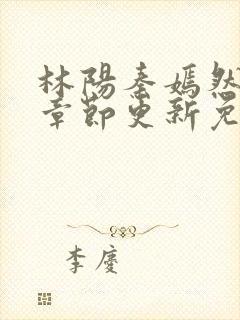 林陽秦嫣然
章節更新免
李慶